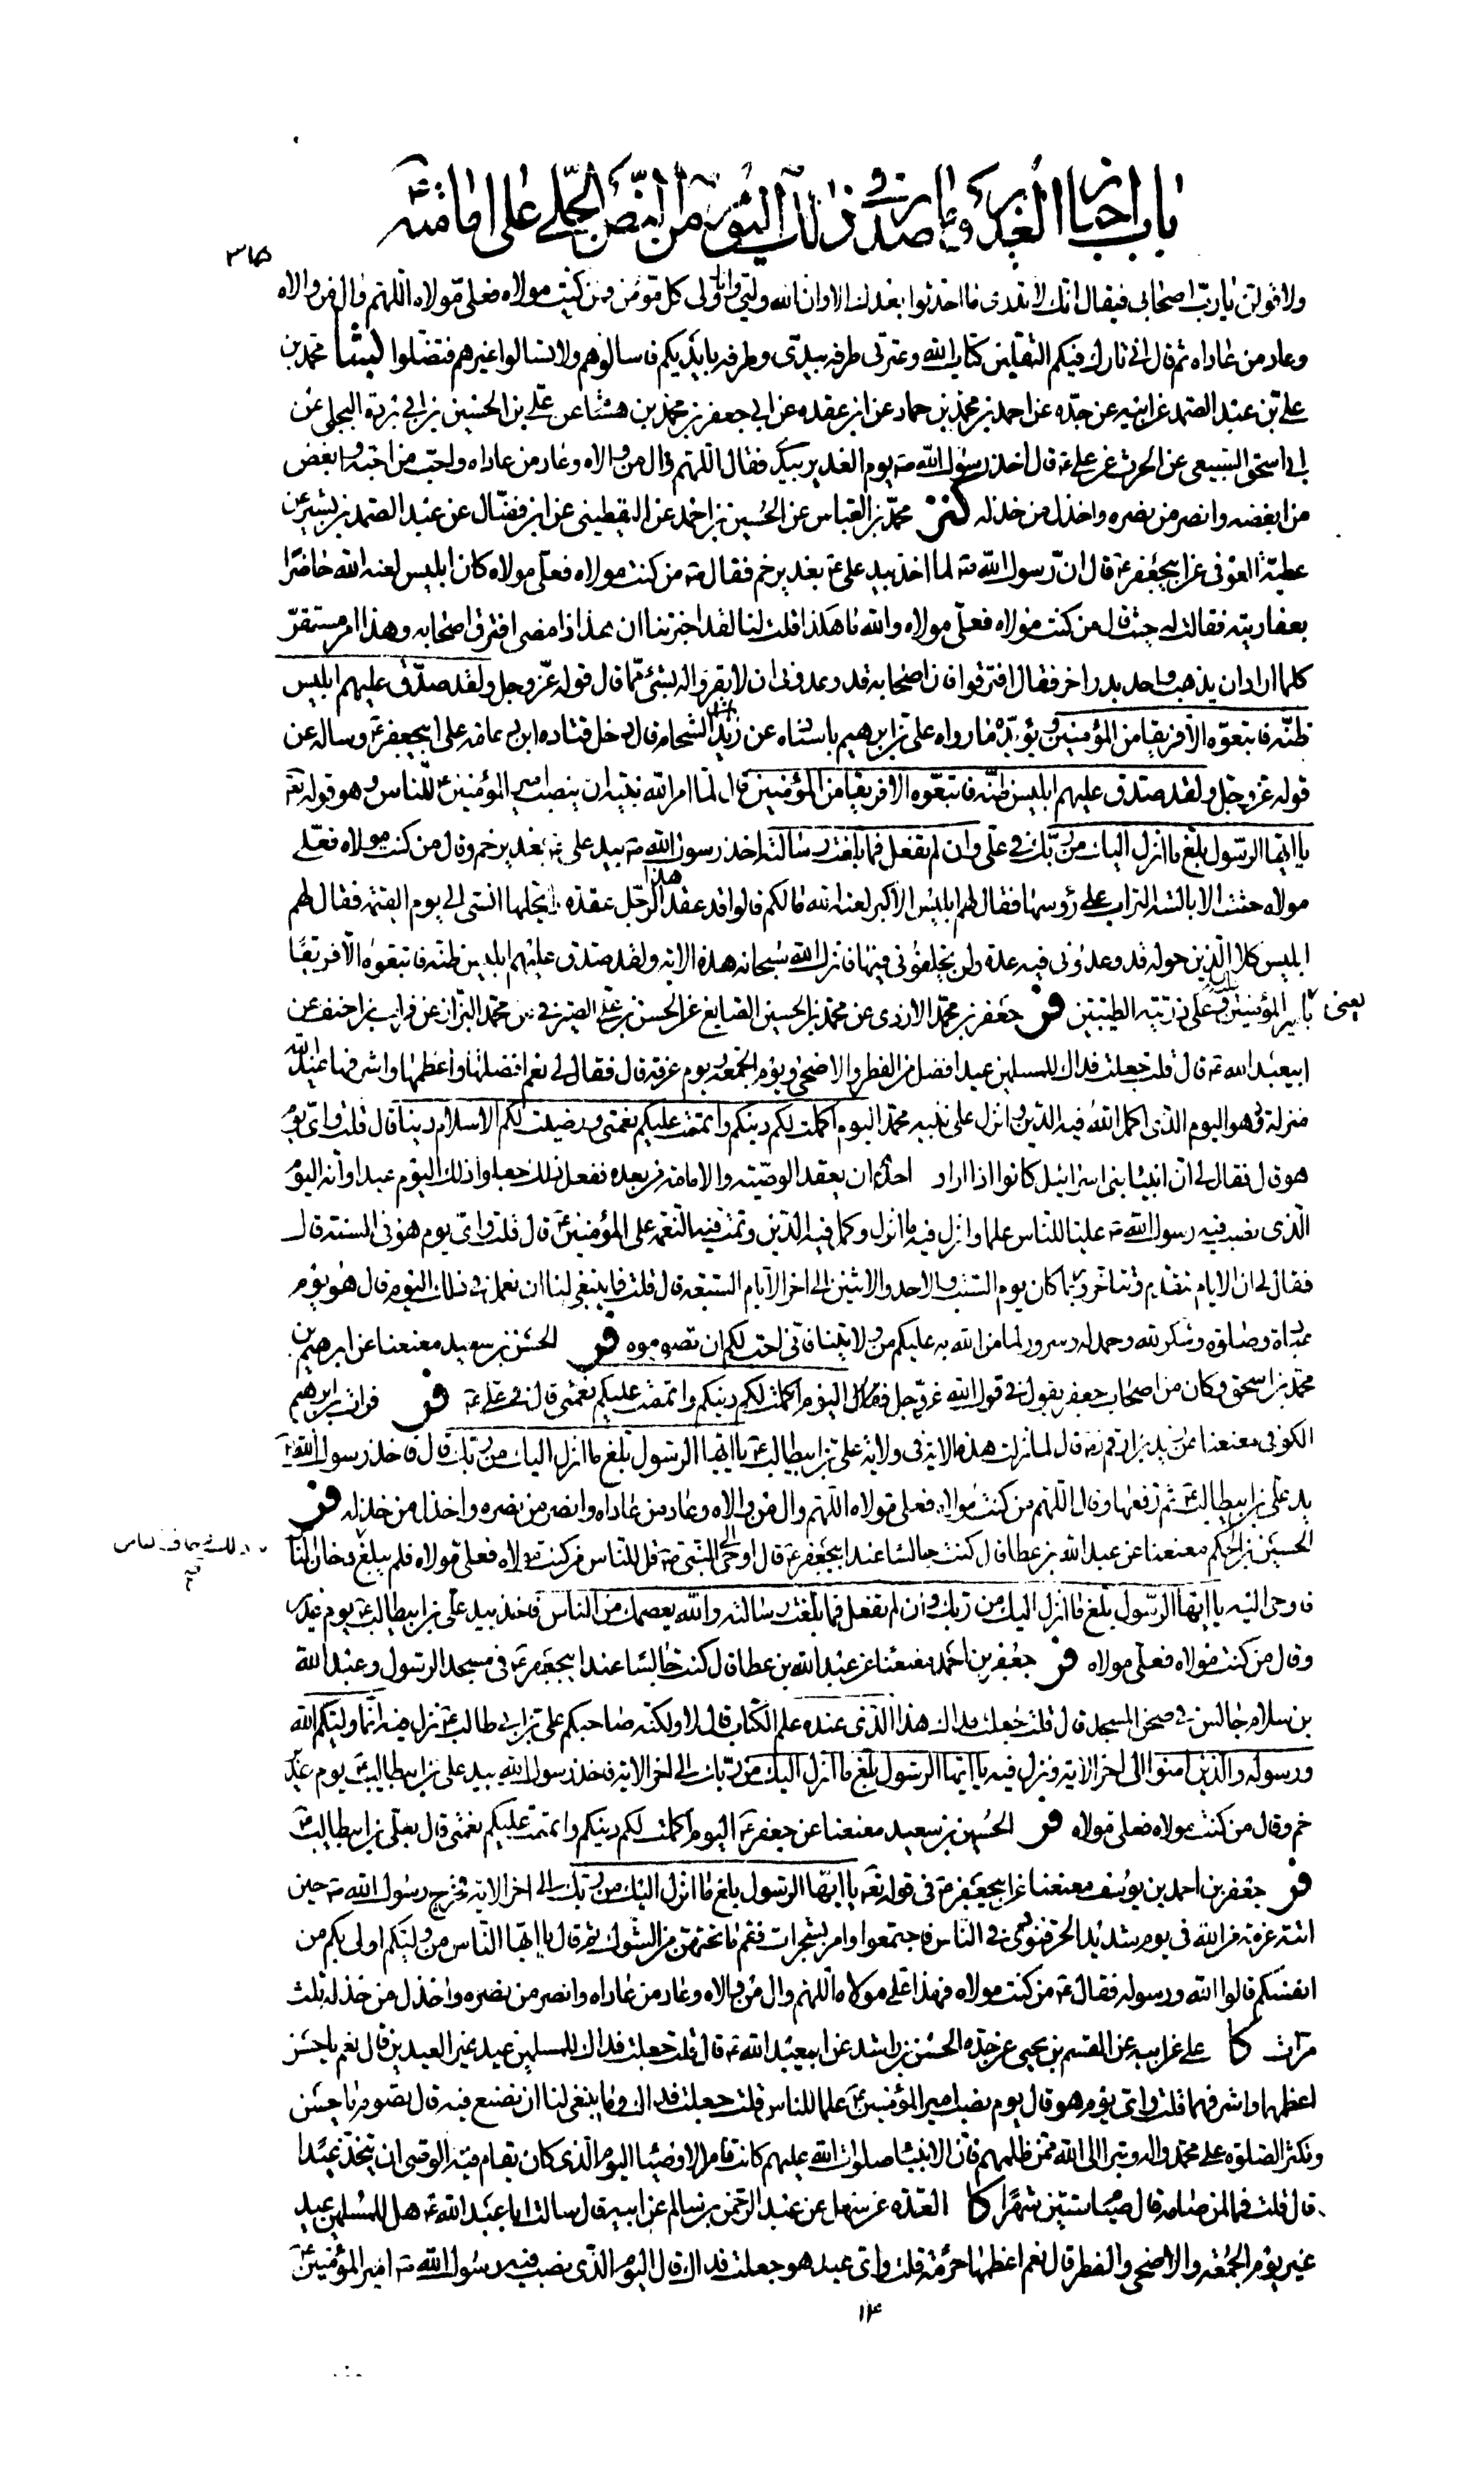 باب اخبار الغدير وما صدر في ذلك اليوم من النص الجلي على امامته
ولاقولن يا رب اصحابي فيقال انك لا تدري ما احدثوا بعدك الا وان الله وليي وانا ولي كل مؤمن ومن كنت مولاه فعلي مولاه اللهم وال من والاه
وعاد من عاداه ثم قال اني تارك فيكم الثقلين كتاب الله وعترتي طرفه بيدي وطرفه بايديكم فاسالوهم ولا تسالوا غيرهم فتضلوا بشا محمد بن
علي بن عبد الصمد عن ابيه عن جده عن احمد بن محمد بن حماد عن ابن عقده عن ابي جعفر بن محمد بن هشا عن علي بن الحسين بن ابي بردة البجلي عن
ابي اسحق السبيعي عن الحرث عن علي ع قال اخذ رسول الله ص يوم الغدير بيدي فقال اللهم وال من والاه وعاد من عاداه واحب من احبه وابغض
من ابغضه وانصر من نصره واخذل من خذله كنز محمد بن العباس عن الحسين بن احمد عن اليقطيني عن ابن فضال عن عبد الصمد بن بشير عن
عطية العوفي عن ابيجعفر ع قال ان رسول الله ص لما اخذ بيد علي ع بغدير خم فقال ص من كنت مولاه فعلي مولاه كان ابليس لعنه الله حاضرا
بعفاريته فقالت له حيث قال من كنت مولاه فعلي مولاه والله ما هكذا قلت لنا لقد اخبرتنا ان هذا اذا مضى افترق اصحابه وهذا امر مستقر
كلما اراد ان يذهب واحد بدر اخر فقال افترقوا فان اصحابه قد وعدوني ان لا يقروا له بشئ مما قال قوله عز وجل ولقد صدق عليهم ابليس
ظنه فاتبعوه الا فريقا من المؤمنين ويؤيده ما رواه علي بن ابرهيم باسناده عن زيد الشحام قال دخل قتاده ابن دعامه على ابيجعفر ع وساله عن
قوله عز وجل ولقد صدق عليهم ابليس ظنه فاتبعوه الا فريقا من المؤمنين قال لما امر الله نبيه ان ينصب امير المؤمنين ع للناس وهو قوله تع
يا ايها الرسول بلغ ما انزل اليك من ربك في علي وان لم تفعل فما بلغت رسالته اخذ رسول الله ص بيد علي ع بغدير خم وقال من كنت مولاه فعلي
مولاه حثت الابالسة التراب على رؤسها فقال لهم ابليس الاكبر لعنه الله ما لكم قالوا قد عقد هذا الرجل عقدة لا يحلها انسي الى يوم القيمة فقال لهم
ابليس كلا الذين حوله قد وعدوني فيه عدة ولن يخلفوني فيها فانزل الله سبحانه هذه الاية ولقد صدق عليهم ابليس ظنه فاتبعوه الا فريقا
يعني بامير المؤمنين وعلى ذريته الطيبين فر جعفر بن محمد الازدي عن محمد بن الحسين الصايغ عن الحسن بن علي الصيرفي عن محمد البزاز عن فرات بن احنف عن
ابيعبد الله ع قال قلت جعلت فداك للمسلمين عيد افضل من الفطر والاضحى ويوم الجمعة ويوم عرفة قال فقال لي نعم افضلها واعظمها واشرفها عند الله
منزلة وهو اليوم الذي اكمل الله فيه الدين وانزل على نبيه محمد اليوم اكملت لكم دينكم واتممت عليكم نعمتي ورضيت لكم الاسلام دينا قال قلت واي يوم
هو قال فقال لي ان انبيا بني اسرائيل كانوا اذا اراد احدهم ان يعقد الوصية والامامة من بعده ففعل ذلك جعلوا ذلك اليوم عيدا وانه اليوم
الذي نصب فيه رسول الله ص عليا للناس علما وانزل فيه ما انزل وكمل فيه الدين وتمت فيه النعمة على المؤمنين ع قال قلت واي يوم هو في السنة قال
فقال لي ان الايام تتقدم وتتاخر وربما كان يوم السبت والاحد والاثنين الى اخر الايام السبعة قال قلت فما ينبغي لنا ان نعمل في ذلك اليوم قال هو يوم
عبادة وصلوة وشكر لله وحمد له وسرور لما من الله به عليكم من ولايتنا فاني احب لكم ان تصوموه فر الحسن بن سعيد معنعنا عن ابرهيم بن
محمد بن اسحق وكان من اصحاب جعفر يقول في قول الله عز وجل قال اليوم اكملت لكم دينكم واتممت عليكم نعمتي قال في علي ع فر فرات بن ابرهيم
الكوفي معنعنا عن زيد بن ارقم ره قال لما نزلت هذه الاية في ولاية علي بن ابيطالب ع يا ايها الرسول بلغ ما انزل اليك من ربك قال فاخذ رسول الله ص
بيد علي بن ابيطالب ع ثم رفعها وقال اللهم من كنت مولاه فعلي مولاه اللهم وال من والاه وعاد من عاداه وانصر من نصره واخذل من خذله فر
الحسين بن الحكم معنعنا عن عبد الله بن عطا قال كنت جالسا عند ابيجعفر ع قال اوحى الى النبي ص قل للناس من كنت مولاه فعلي مولاه فلم يبلغ وخاف الناس
فاوحى اليه يا ايها الرسول بلغ ما انزل اليك من ربك وان لم تفعل فما بلغت رسالته والله يعصمك من الناس فاخذ بيد علي بن ابيطالب ع يوم غدير
وقال من كنت مولاه فعلي مولاه فر جعفر بن احمد معنعنا عن عبد الله بن عطا قال كنت جالسا عند ابيجعفر ع في مسجد الرسول وعبد الله
بن سلام جالس في صحن المسجد قال قلت جعلت فداك هذا الذي عنده علم الكتاب قال لا ولكنه صاحبكم علي بن ابي طالب ع نزل فيه انما وليكم الله
ورسوله والذين امنوا الى اخر الاية ونزل فيه يا ايها الرسول بلغ ما انزل اليك من ربك الى اخر الاية فاخذ رسول الله بيد علي بن ابيطالب ع يوم غدير
خم وقال من كنت مولاه فعلي مولاه فر الحسين بن سعيد معنعنا عن جعفر ع اليوم اكملت لكم دينكم واتممت عليكم نعمتي قال بعلي بن ابيطالب ع
فر جعفر بن احمد بن يوسف معنعنا عن ابيجعفر ع في قوله تع يا ايها الرسول بلغ ما انزل اليك من ربك الى اخر الاية فخرج رسول الله ص حين
اتته عزمة من الله في يوم شديد الحر فنودي في الناس فاجتمعوا وامر بشجرات فقم ما تحتهن من الشوك ثم قال يا ايها الناس من وليكم اولى بكم من
انفسكم قالوا الله ورسوله فقال ع من كنت مولاه فهذا علي مولاه اللهم وال من والاه وعاد من عاداه وانصر من نصره واخذل من خذله ثلث
مرات كا علي عن ابيه عن القسم بن يحيى عن جده الحسن بن راشد عن ابيعبد الله ع قال قلت جعلت فداك للمسلمين عيد غير العيدين قال نعم يا حسن
اعظمهما واشرفهما قلت واي يوم هو قال يوم نصب امير المؤمنين ع علما للناس قلت جعلت فداك وما ينبغي لنا ان نصنع فيه قال تصوم يا حسن
وتكثر الصلوة على محمد واله وتبرا الى الله ممن ظلمهم فان الانبيا صلوات الله عليهم كانت تامر الاوصيا اليوم الذي كان يقام فيه الوصي ان يتخذ عيدا
قال قلت فما لمن صامه قال صيام ستين شهرا كا العدة عن سهل عن عبد الرحمن بن سالم عن ابيه قال سالت ابا عبد الله ع هل للمسلمين عيد
غير يوم الجمعة والاضحى والفطر قال نعم اعظمها حرمة قلت واي عيد هو جعلت فداك قال اليوم الذي نصب فيه رسول الله ص امير المؤمنين ع
١٤